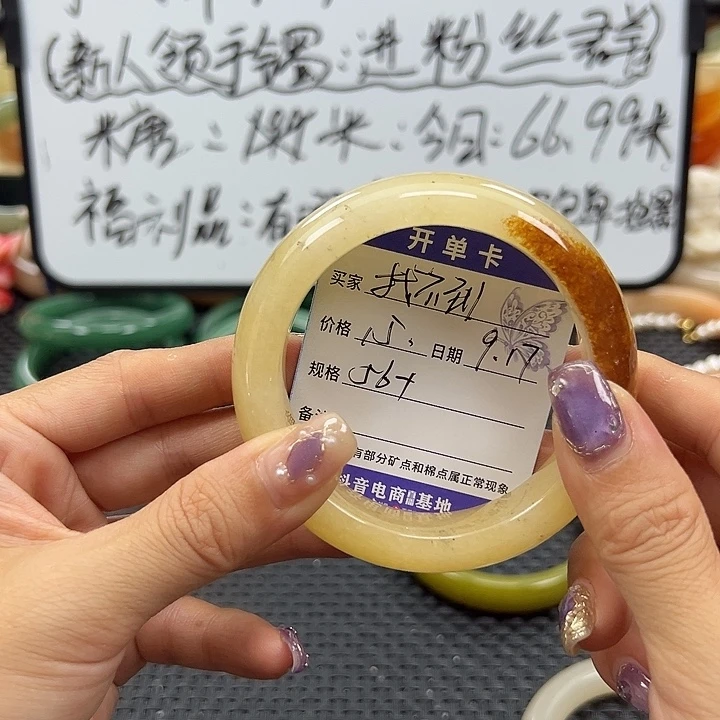 (新人领手镯:进粉丝群)
糖:1衔米:今日:66.99米
福利品:有
单 拉黑
开单卡
买家 找不到
价格 15. 日期 9.17
规格 56+
备注
有部分矿点和棉点属正常现象
抖音电商直播基地